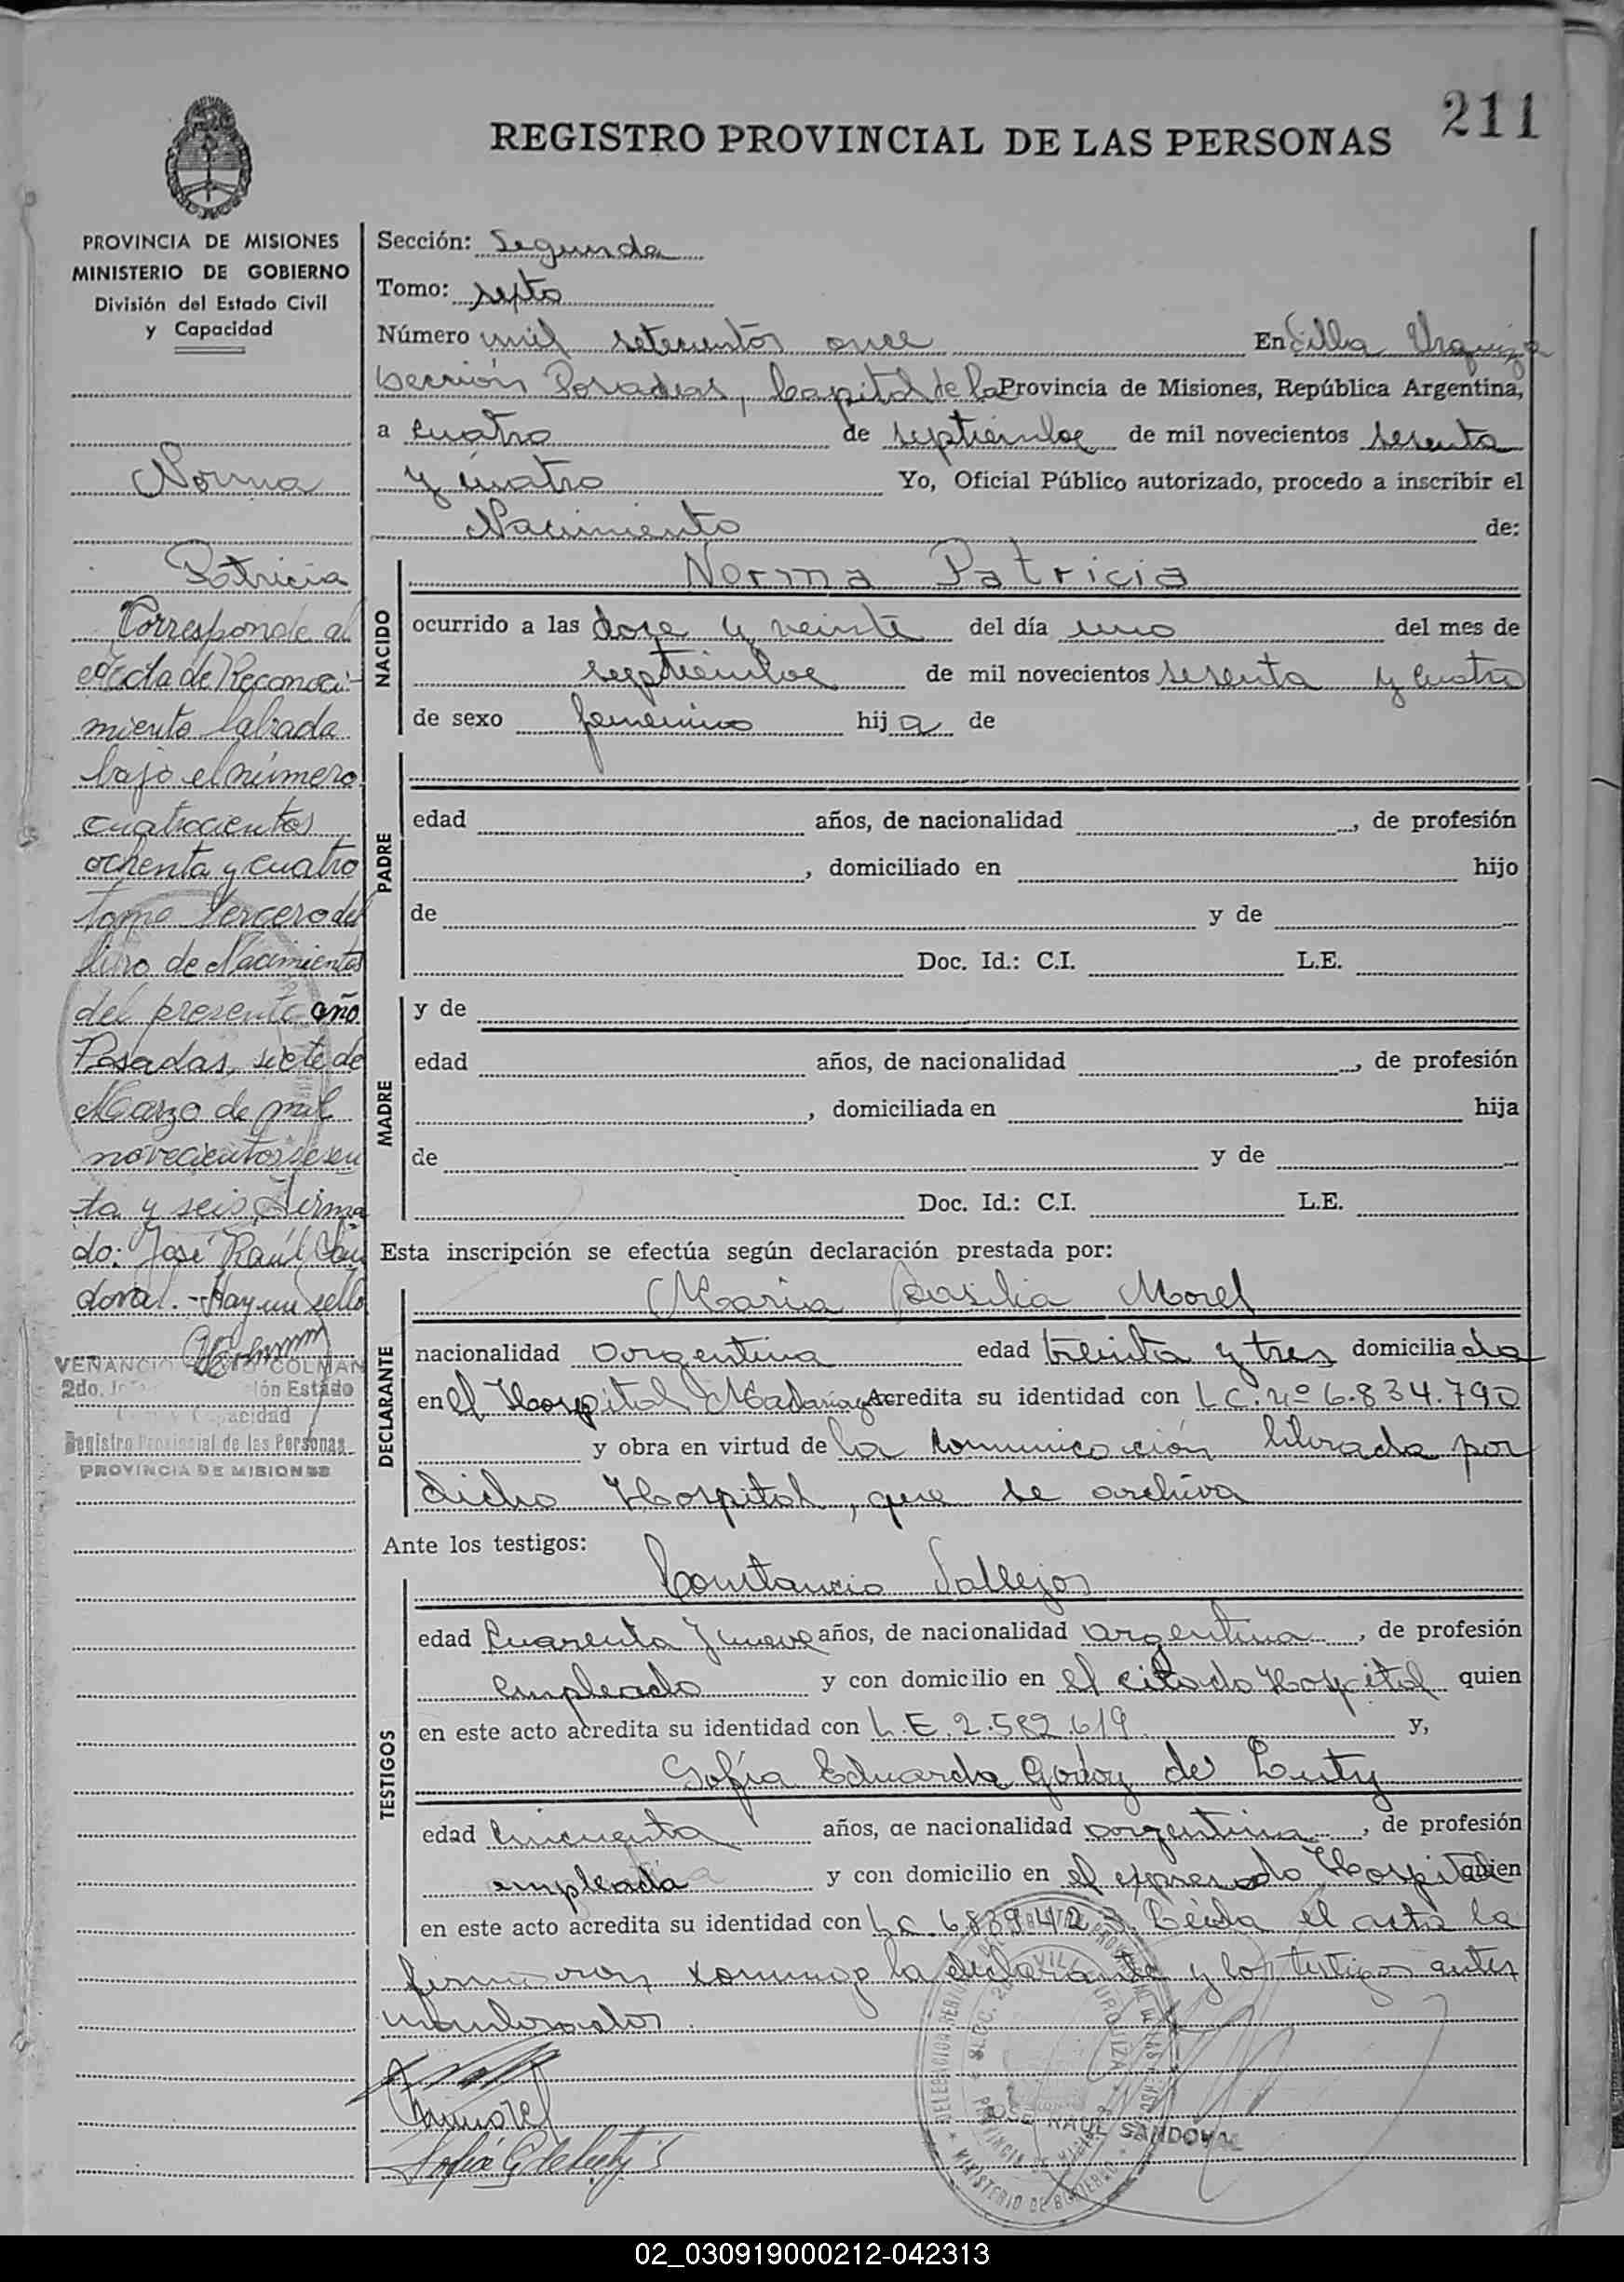 211
REGISTRO PROVINCIAL DE LAS PERSONAS
PROVINCIA DE MISIONES
MINISTERIO DE GOBIERNO
División del Estado Civil
y Capacidad
Norma
Patricia
Corresponde al
Acta de Reconoci-
miento labrada
bajo el número
cuatrocientos
ochenta y cuatro
tomo tercero del
libro de Nacimientos
del presente año
Posadas, siete de
Marzo de mil
novecientos sesen
ta y seis Firma
do: José Raúl San
doval. - Hay un sello
VENANCIO COLMAN
2do. ión Estado
acidad
Registro Provincial de las Personas
PROVINCIA DE MISIONES
Sección: Segunda
Tomo: septo
Número mil setecientos once En Villa Urquiza
sección Posadas, Capital de la Provincia de Misiones, República Argentina,
a cuatro de septiembre de mil novecientos sesenta
y cuatro Yo, Oficial Público autorizado, procedo a inscribir el
Nacimiento de:
NACIDO
Norma Patricia
ocurrido a las doce y veinte del día uno del mes de
septiembre de mil novecientos sesenta y cuatro
de sexo femenino hija de
PADRE
edad años, de nacionalidad , de profesión
, domiciliado en hijo
de y de
Doc. Id.: C.I. L.E.
MADRE
y de
edad años, de nacionalidad , de profesión
, domiciliada en hija
de y de
Doc. Id.: C.I. L.E.
Esta inscripción se efectúa según declaración prestada por:
DECLARANTE
María Basilia Morel
nacionalidad argentina edad treinta y tres domiciliada
en el Hospital Madariaga Acredita su identidad con L.C. nº 6.834.790
y obra en virtud de la comunicación librada por
dicho Hospital, que se archiva
Ante los testigos:
TESTIGOS
Constancio Vallejos
edad cuarenta y nueve años, de nacionalidad argentina, de profesión
empleado y con domicilio en el citado Hospital quien
en este acto acredita su identidad con L.E. 2.582.619 y,
Sofía Eduarda Godoy de Luty
edad cincuenta años, de nacionalidad argentina, de profesión
empleada y con domicilio en el expresado Hospital quien
en este acto acredita su identidad con L.C. 6.839.423. Leída el acta la
firmaron conmigo la declarante y los testigos antes
nombrados.
MMorel
Sofía G de Luty
JOSE RAUL SANDOVAL
02_030919000212-042313